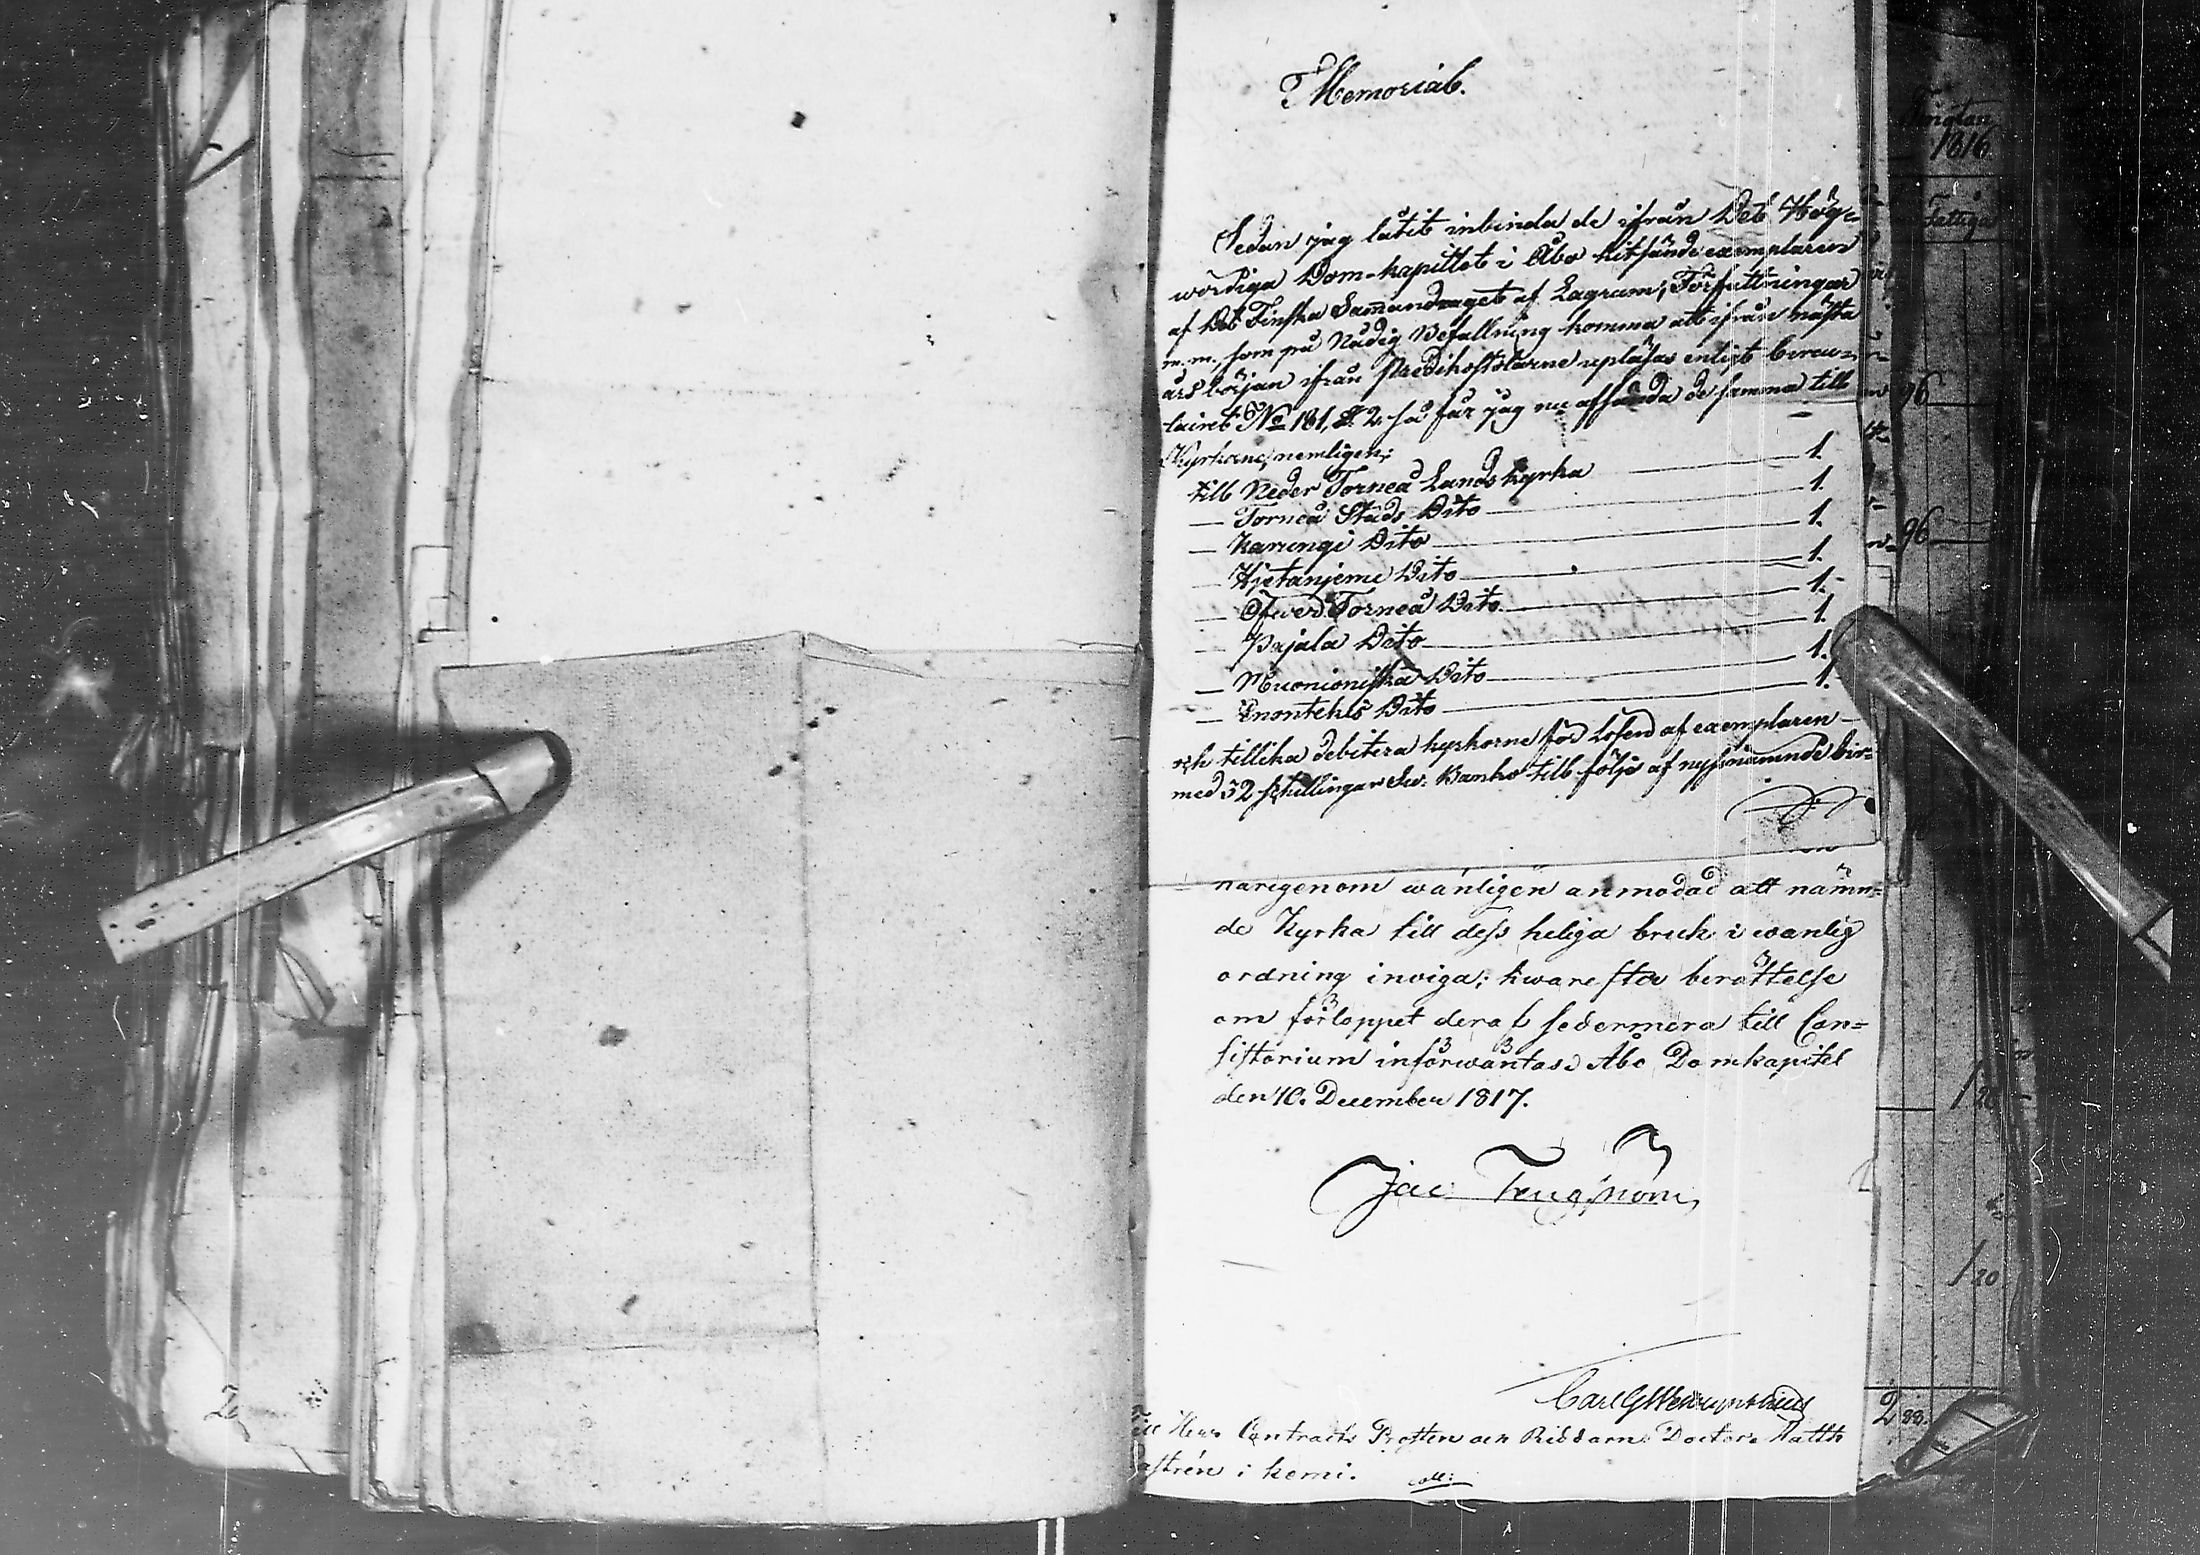 Memorial.
Sedan jag låtit inbinda de ifrån Det Hög-
wördiga Dom-kapitlet i Åbo hitsände exemplaren
af det Finska Samandraget af Lagrum, Författningar
m.m., som på Nådig Befallning komma att ifrån nästa
års början ifrån Predikostolarne upläsas enligt Circu-
lairet No 181, §. 2. så får jag nu afsända de samma till
Kyrkorne, nemligen;
till Neder Torneå Lands kyrka 1.
— Torneå Stads Dito 1.
— Karungi Dito 1.
— Hjetanjemi Dito 1.
— Öfwer Torneå Dito 1.
— Pajala Dito 1.
— Muonioniska Dito 1.
— Enontekis Dito 1.
och tillika debitera kyrkorne för Losen af exemplaren
med 32 skillingar Sw: Banko till följe af nyssnämnde Cir=
harigenom wänligen anmodad att nämn=
de Kyrka till dess heliga bruk i wanlig
ordning inviga; hwarefter berättelse
om förloppet deraf sedermera till Con=
sistorium införwäntas. Åbo Domkapitel
den 10. December 1817.
Jac Tengström
Till Herr Contracts Prosten och Riddaren Doctor Matth
astrén i Kemi. coll:
1816.
Fattiga
96
96
1 20
1 20
2